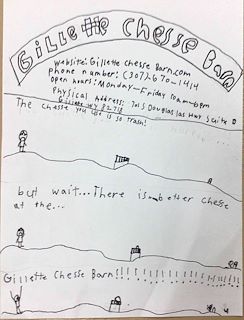 Gillette Chesse Barn
Website: Gillette Chesse Barn.com
phone number: (307)-670-1414
open hours: Monday-Friday 10am-6pm
Physical Address: 701 S Douglas Hwy Suite D
Gillette WY 82718
The chesse you use is so trash!
but wait... There is better chesse
at the...
Gillette Chesse Barn!!!!!!!!!!!!!!!!!!!!